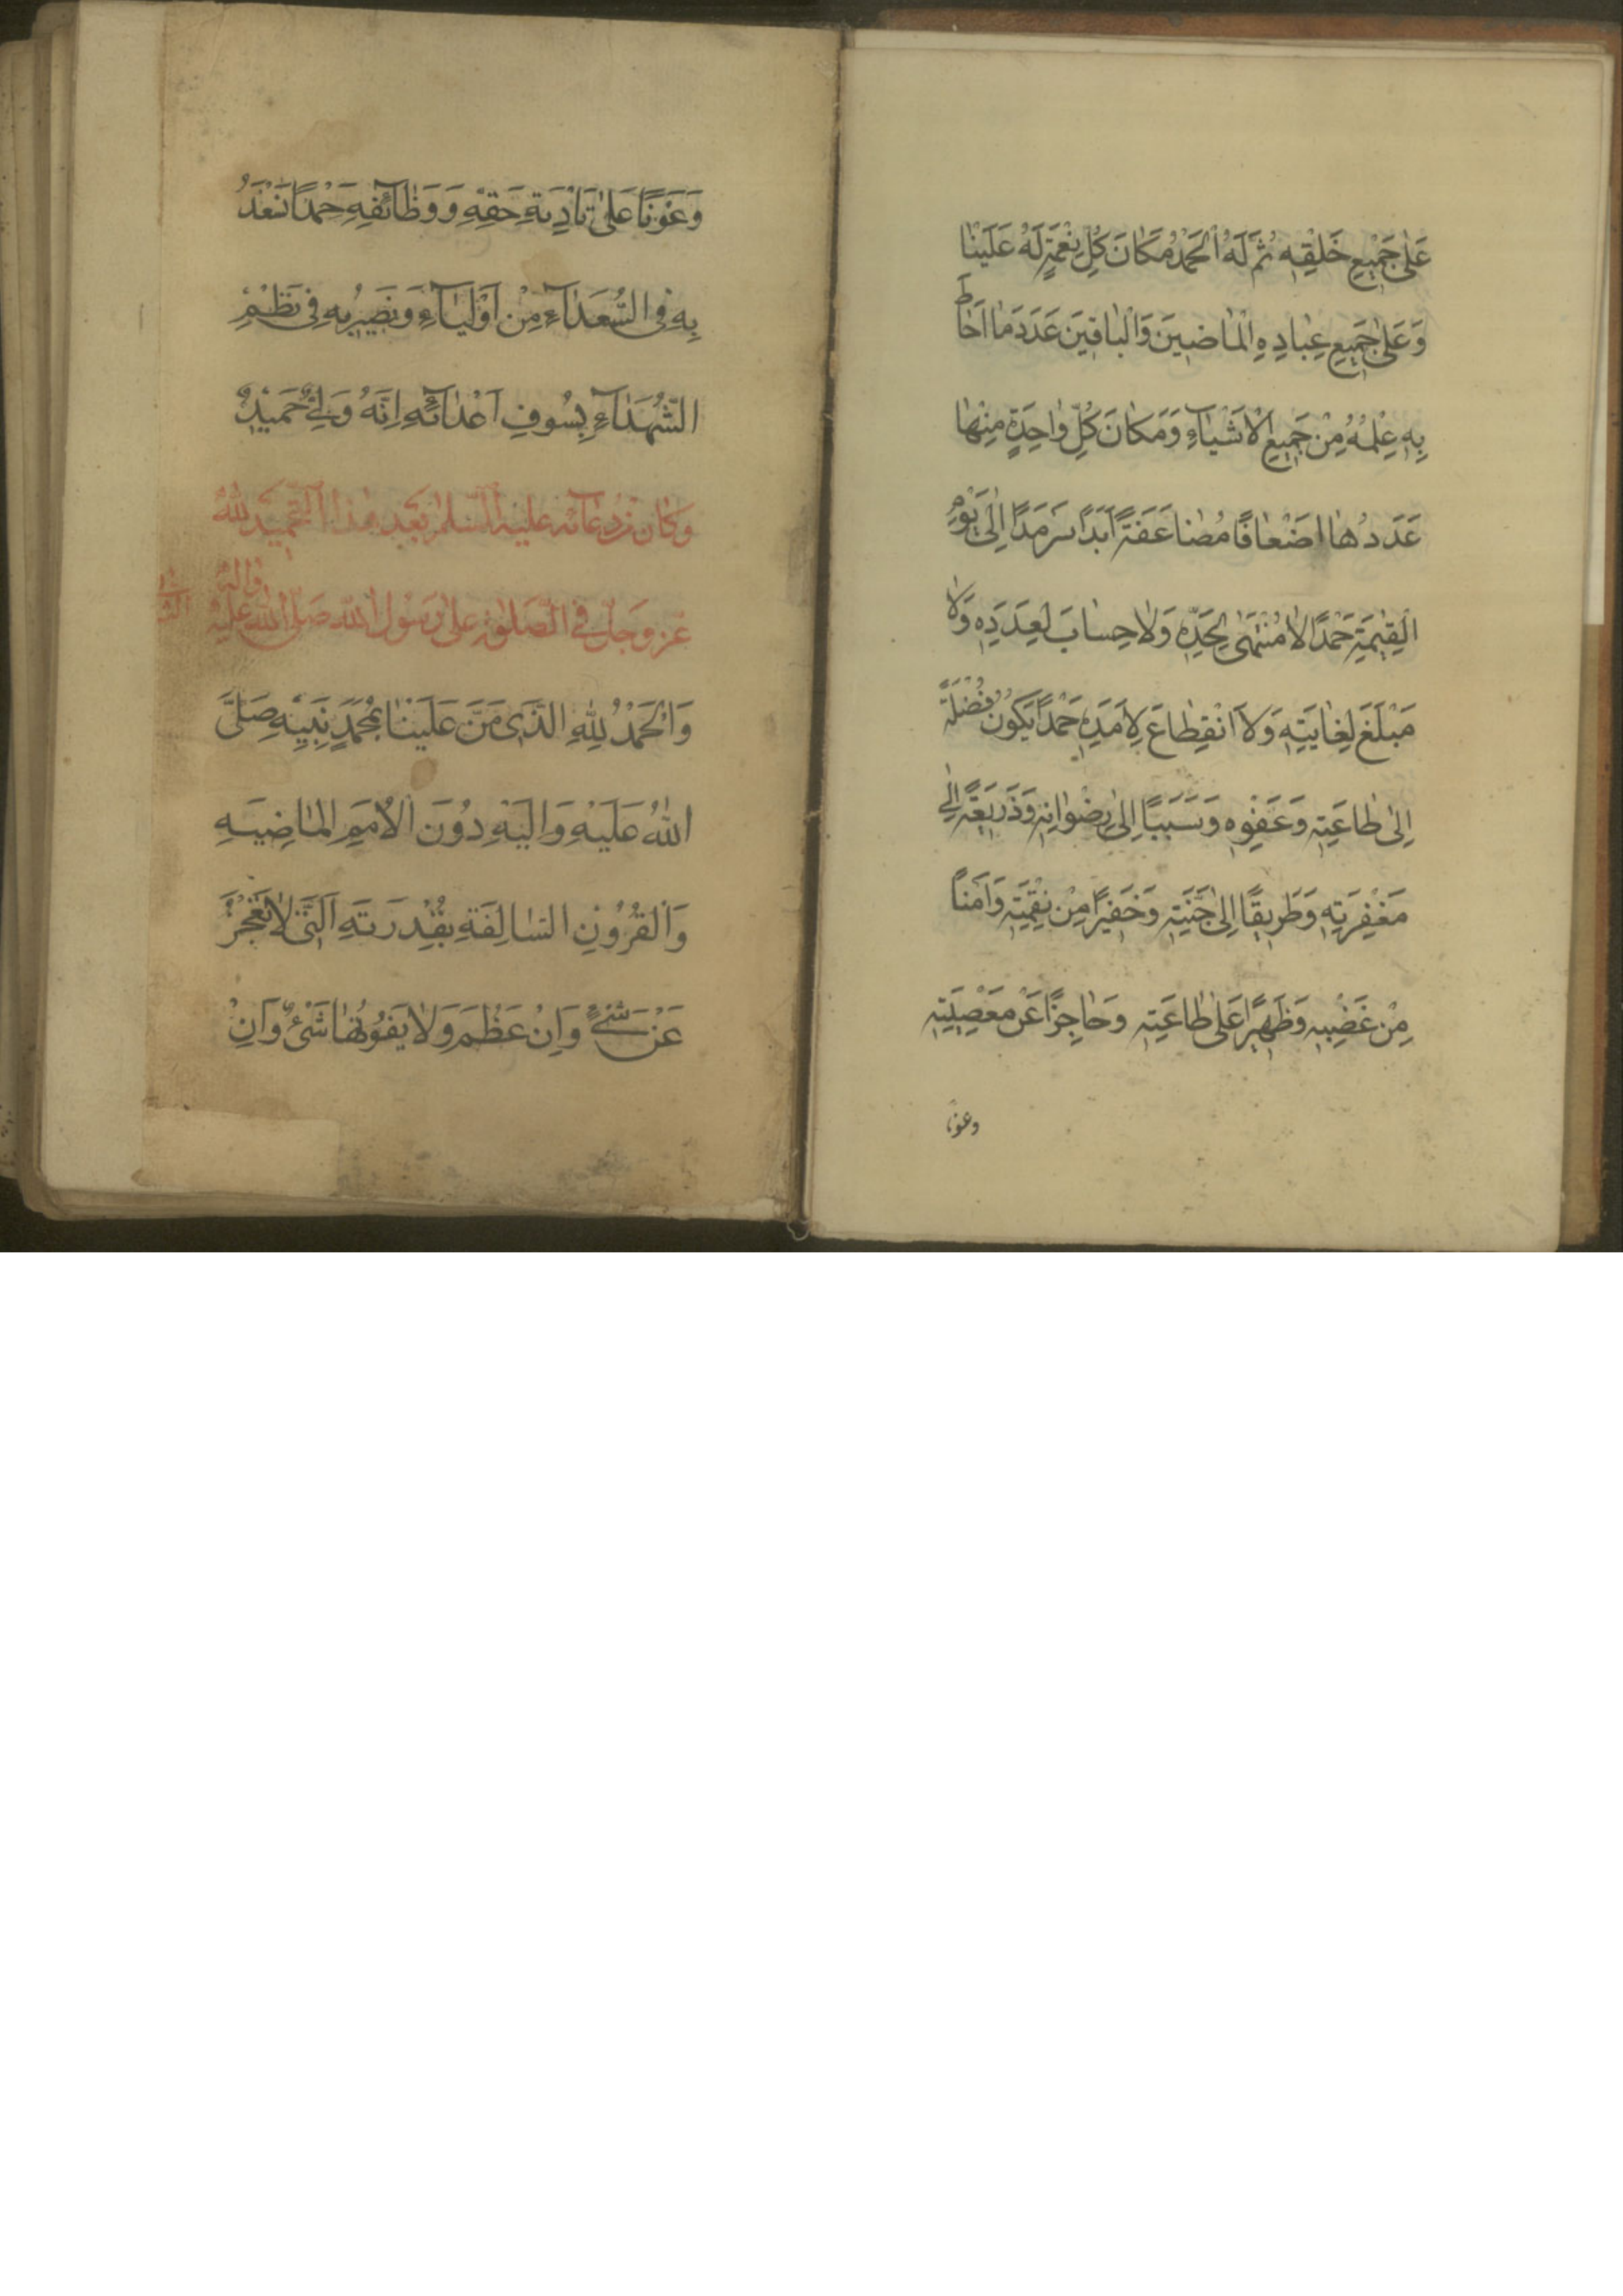 عَلٰى جَمِيْعِ خَلْقِهِ ثُمَّ لَهُ الْحَمْدُ مَكَانَ كُلِّ نِعْمَةٍ لَهُ عَلَيْنَا
وَعَلٰى جَمِيعِ عِبَادِهِ الْمَاضِينَ وَالْبَاقِينَ عَدَدَ مَا اَحَاطَ
بِهِ عِلْمُهُ مِنْ جَمِيعِ الْاَشْيَآءِ وَمَكَانَ كُلِّ وَاحِدَةٍ مِنْهَا
عَدَدُهَا اَضْعَافًا مُضَاعَفَةً اَبَدًا سَرْمَدًا اِلَى يَوْمِ
الْقِيٰمَةِ حَمْدًا لَا مُنْتَهَى لِحَدِّهِ وَلَا حِسَابَ لِعَدَدِهِ وَلَا
مَبْلَغَ لِغَايَتِهِ وَلَا انْقِطَاعَ لِاَمَدِهِ حَمْدًا يَكُونُ وُصْلَةً
اِلٰى طَاعَتِهِ وَعَفْوِهِ وَسَبَبًا اِلٰى رِضْوَانِهِ وَذَرِيعَةً اِلٰى
مَغْفِرَتِهِ وَطَرِيقًا اِلٰى جَنَّتِهِ وَخَفِيرًا مِنْ نِقْمَتِهِ وَاَمْنًا
مِنْ غَضَبِهِ وَظَهِيرًا عَلٰى طَاعَتِهِ وَحَاجِزًا عَنْ مَعْصِيَتِهِ
وعونا
وَعَوْنًا عَلٰى تَاْدِيَةِ حَقِّهِ وَوَظَآئِفِهِ حَمْدًا نَسْعَدُ
بِهِ فِى السُّعَدَآءِ مِنْ اَوْلِيَآءِهِ وَنَصِيرُ بِهِ فِى نَظْمِ
الشُّهَدَآءِ بِسُيُوفِ اَعْدَآئِهِ اِنَّهُ وَلِىٌّ حَمِيدٌ
وَكَانَ مِنْ دُعَآئِهِ عَلَيْهِ السَّلٰمُ بَعْدَ هٰذَا التَّحْمِيدِ لِلّٰهِ
عَزَّ وَجَلَّ فِى الصَّلٰوةِ عَلٰى رَسُولِ اللّٰهِ صَلَّى اللّٰهُ عَلَيْهِ وَاٰلِهِ
وَالْحَمْدُ لِلّٰهِ الَّذِى مَنَّ عَلَيْنَا بِمُحَمَّدٍ نَبِيِّهِ صَلَّى
اللّٰهُ عَلَيْهِ وَاٰلِهِ دُونَ الْاُمَمِ الْمَاضِيَةِ
وَالْقُرُونِ السَّالِفَةِ بِقُدْرَتِهِ الَّتِى لَا تَعْجِزُ
عَنْ شَىْءٍ وَاِنْ عَظُمَ وَلَا يَفُوتُهَا شَىْءٌ وَاِنْ